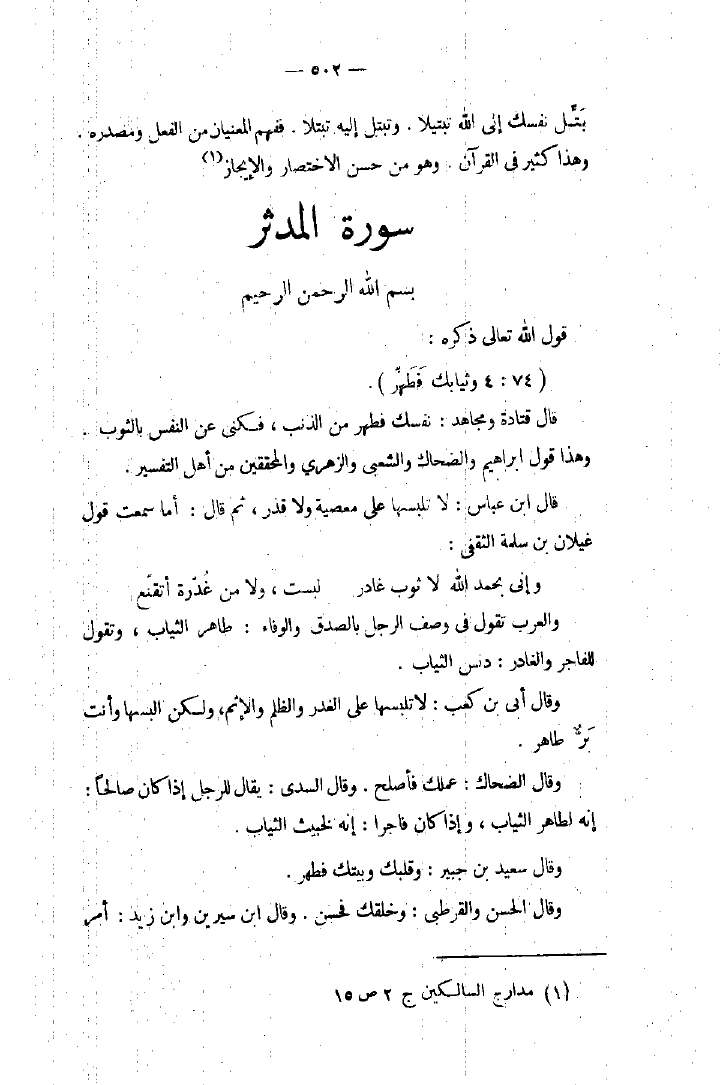 — ٥٠٢ —
بَتِّل نفسك إلى الله تبتيلا . وتبتل إليه تبتلا . ففهم المعنيان من الفعل ومصدره .
وهذا كثير فى القرآن . وهو من حسن الاختصار والإيجاز(١)
سورة المدثر
بسم الله الرحمن الرحيم
قول الله تعالى ذكره :
( ٧٤ : ٤ وثيابك فَطَهِّر ) .
قال قتادة ومجاهد : نفسك فطهر من الذنب ، فكنى عن النفس بالثوب .
وهذا قول ابراهيم والضحاك والشعبى والزهري والمحققين من أهل التفسير .
قال ابن عباس : لا تلبسها على معصية ولا قذر ، ثم قال : أما سمعت قول
غيلان بن سلمة الثقفى :
وإنى بحمد الله لا ثوب غادر لبست ، ولا من غُدّرة أتقنّع
والعرب تقول فى وصف الرجل بالصدق والوفاء : طاهر الثياب ، وتقول
للفاجر والغادر : دنس الثياب .
وقال أبى بن كعب : لا تلبسها على الغدر والظلم والإثم، ولكن البسها وأنت
بَرٌّ طاهر .
وقال الضحاك : عملك فأصلح . وقال السدى : يقال للرجل إذا كان صالحاً :
إنه لطاهر الثياب ، وإذا كان فاجرا : إنه لخبيث الثياب .
وقال سعيد بن جبير : وقلبك وبيتك فطهر .
وقال الحسن والقرطبى : وخلقك فحسن . وقال ابن سيرين وابن زيد : أمر
(١) مدارج السالكين ج ٢ ص ١٥